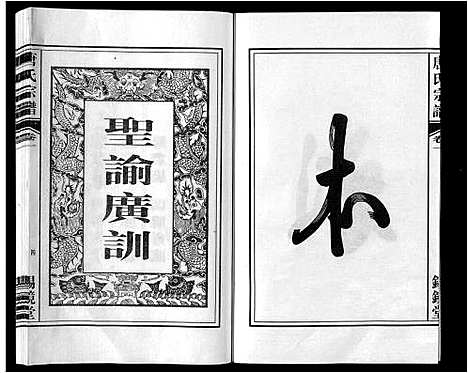 本
唐氏宗譜
卷一
錫鏡堂
聖諭廣訓
唐氏宗譜
卷一
四
錫鏡堂